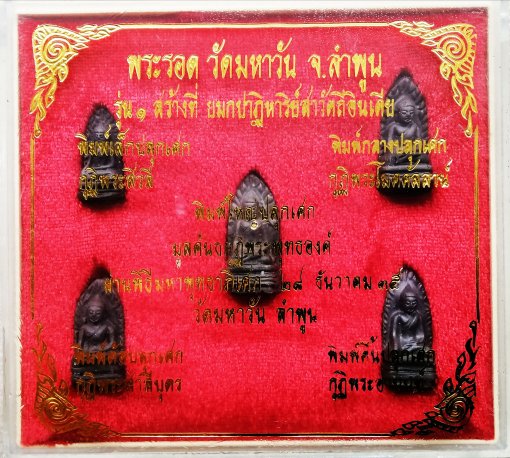 พระรอด วัดมหาวัน จ.ลำพูน
รุ่น ๑ สร้างที่ ยมกปาฏิหาริย์สาวัตถีอินเดีย
พิมพ์เล็กปลุกเสก
กุฏิพระสิวลี
พิมพ์กลางปลุกเสก
กุฏิพระโมคคัลลาน์
พิมพ์ใหญ่ปลุกเสก
มูลคันธกุฏีพระพุทธองค์
ผ่านพิธีมหาพุทธาภิเษก ๒๘ ธันวาคม ๓๕
วัดมหาวัน ลำพูน
ปลุกเสก
สารีบุตร
พิมพ์ตื้นปลุกเสก
กุฏิพระ